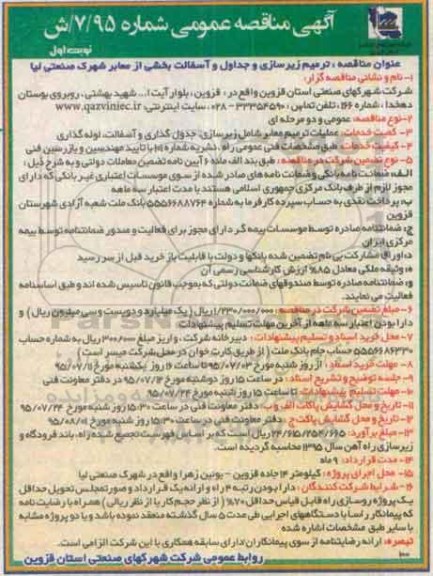 آگهی مناقصه عمومی شماره ۷/۹۵/ش
نوبت اول
عنوان مناقصه : ترمیم زیرسازی و جداول و آسفالت بخشی از معابر شهرک صنعتی لیا
۱- نام و نشانی مناقصه گزار:
شرکت شهرکهای صنعتی استان قزوین واقع در: قزوین، بلوار آیت ا... شهید بهشتی، روبروی بوستان
دهخدا، شماره ۱۶۶، تلفن تماس: ۳۳۳۵۴۵۹۰-۰۲۸ سایت اینترنتی: www.qazviniec.ir
۲- نوع مناقصه: عمومی و دو مرحله ای
۳- کمیت خدمات: عملیات ترمیم معابر شامل زیرسازی، جدول گذاری و آسفالت، لوله گذاری
۴- کیفیت خدمات: طبق مشخصات فنی عمومی راه، نشریه شماره ۱۰۱ با تایید مهندسین و بازرسین فنی
۵- نوع تضمین شرکت در مناقصه: طبق بند الف ماده ۶ آیین نامه تضمین معاملات دولتی و به شرح ذیل:
الف: ضمانت نامه بانکی و ضمانت نامه های صادر شده از سوی موسسات اعتباری غیر بانکی که دارای
مجوز لازم از طرف بانک مرکزی جمهوری اسلامی هستند با مدت اعتبار سه ماهه
ب: پرداخت نقدی به حساب سپرده کارفرما به شماره ۵۵۵۶۶۸۸۷۶۴ بانک ملت شعبه آزادی شهرستان
قزوین
ج: ضمانتنامه صادره توسط موسسات بیمه گر دارای مجوز برای فعالیت و صدور ضمانتنامه توسط بیمه
مرکزی ایران
د: اوراق مشارکت بی نام تضمین شده بانکها و دولت با قابلیت باز خرید قبل از سررسید
ه: وثیقه ملکی معادل ۸۵% ارزش کارشناسی رسمی آن
و: ضمانتنامه صادره توسط صندوقهای ضمانت دولتی که بموجب قانون تاسیس شده اند و طبق اساسنامه
فعالیت می نمایند.
۶- مبلغ تضمین شرکت در مناقصه: ۱/۲۳۰/۰۰۰/۰۰۰ ریال (یک میلیارد و دویست و سی میلیون ریال) و
دارا بودن اعتبار سه ماهه از آخرین مهلت تسلیم پیشنهادات
۷- محل خرید اسناد و تسلیم پیشنهادات: دبیرخانه شرکت، واریز مبلغ ۳۰۰/۰۰۰ ریال به شماره حساب
۵۵۵۶۸۶۳۳۰ حساب جام بانک ملت (از طریق کارت خوان در محل شرکت میسر است)
۸- مهلت خرید اسناد: از روز شنبه مورخ ۹۵/۰۷/۰۳ تا ساعت ۱۹ روز یکشنبه مورخ ۹۵/۰۷/۱۱
۹- جلسه توضیح و تشریح اسناد: در ساعت ۱۵ روز دوشنبه مورخ ۹۵/۰۷/۱۲ در دفتر معاونت فنی
۱۰- مهلت تسلیم پیشنهادات: تا ساعت ۱۵ روز شنبه مورخ ۹۵/۰۷/۲۴
۱۱- تاریخ و محل گشایش پاکات الف و ب: دفتر معاونت فنی در ساعت ۱۵:۳۰ روز شنبه مورخ ۹۵/۰۷/۲۴
۱۲- تاریخ و محل گشایش پاکت ج: دفتر معاونت فنی در ساعت ۱۵:۳۰ روز شنبه مورخ ۹۵/۰۸/۰۱
۱۳- مبلغ برآورد: ۲۴/۶۱۵/۲۵۴/۶۶۵ ریال است که بر اساس فهرست تجمیع شده راه، باند فرودگاه و
زیرسازی راه آهن سال ۱۳۹۵ محاسبه گردیده است.
۱۴- مدت قرارداد: ۹ ماه
۱۵- محل اجرای پروژه: کیلومتر ۱۴ جاده قزوین - بوئین زهرا واقع در شهرک صنعتی لیا
۱۶- شرایط شرکت کنندگان: دارا بودن رتبه ۴ راه و ارائه یک قرارداد و صورتمجلس تحویل حداقل
یک پروژه روسازی راه قابل قیاس حداقل ۷۰% (از نظر حجم کار یا از نظر ریالی) همراه با رضایت نامه
که پیمانکار راسا با دستگاههای اجرایی طی مدت ۵ سال گذشته منعقد نموده باشد و یا دو پروژه مشابه
با سایر طبق مشخصات اشاره شده
تبصره: ارائه رضایتنامه از سوی پیمانکاران دارای سابقه همکاری با این شرکت الزامی است.
روابط عمومی شرکت شهرکهای صنعتی استان قزوین